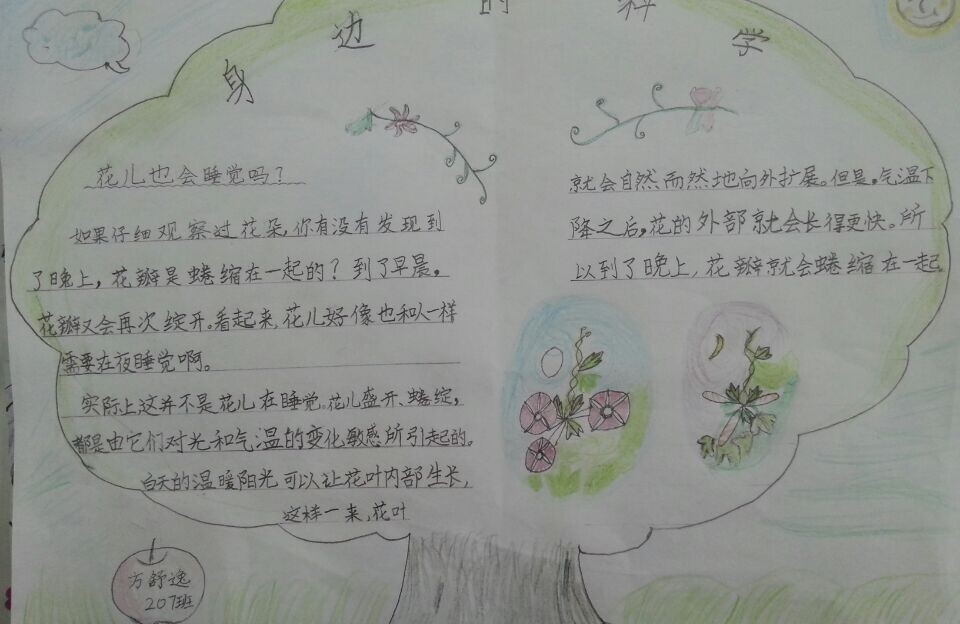 身边的科学
花儿也会睡觉吗？
如果仔细观察过花朵，你有没有发现到
了晚上，花瓣是蜷缩在一起的？到了早晨，
花瓣又会再次绽开。看起来，花儿好像也和人一样
需要在夜睡觉啊。
实际上这并不是花儿在睡觉。花儿盛开、蜷绽，
都是由它们对光和气温的变化敏感所引起的。
白天的温暖阳光可以让花叶内部生长，
这样一来，花叶
就会自然而然地向外扩展。但是，气温下
降之后，花的外部就会长得更快。所
以到了晚上，花瓣就会蜷缩在一起。
方舒逸
207班